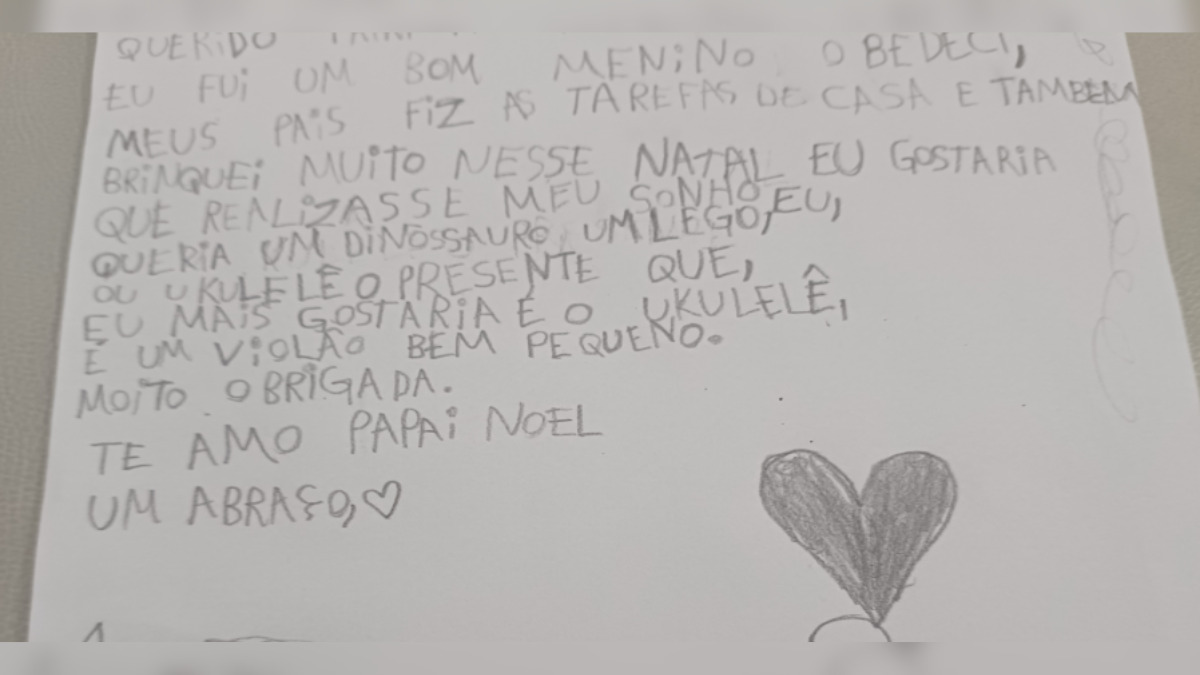 QUERIDO
EU FUI UM BOM MENINO OBEDECI,
MEUS PAIS FIZ AS TAREFAS DE CASA E TAMBEM
BRINQUEI MUITO NESSE NATAL EU GOSTARIA
QUE REALIZASSE MEU SONHO
QUERIA UM DINOSSAURO, UM LEGO, EU,
OU UKULELÊ O PRESENTE QUE,
EU MAIS GOSTARIA É O UKULELÊ,
É UM VIOLÃO BEM PEQUENO.
MOITO OBRIGADA.
TE AMO PAPAI NOEL
UM ABRAÇO,♡